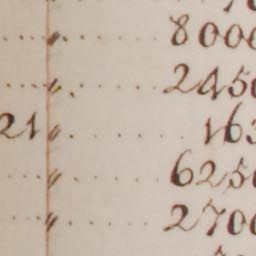 〃 ........ 8000
〃 ........ 2450
21 〃 ........ 163
〃 ........ 6250
〃 ........ 2700